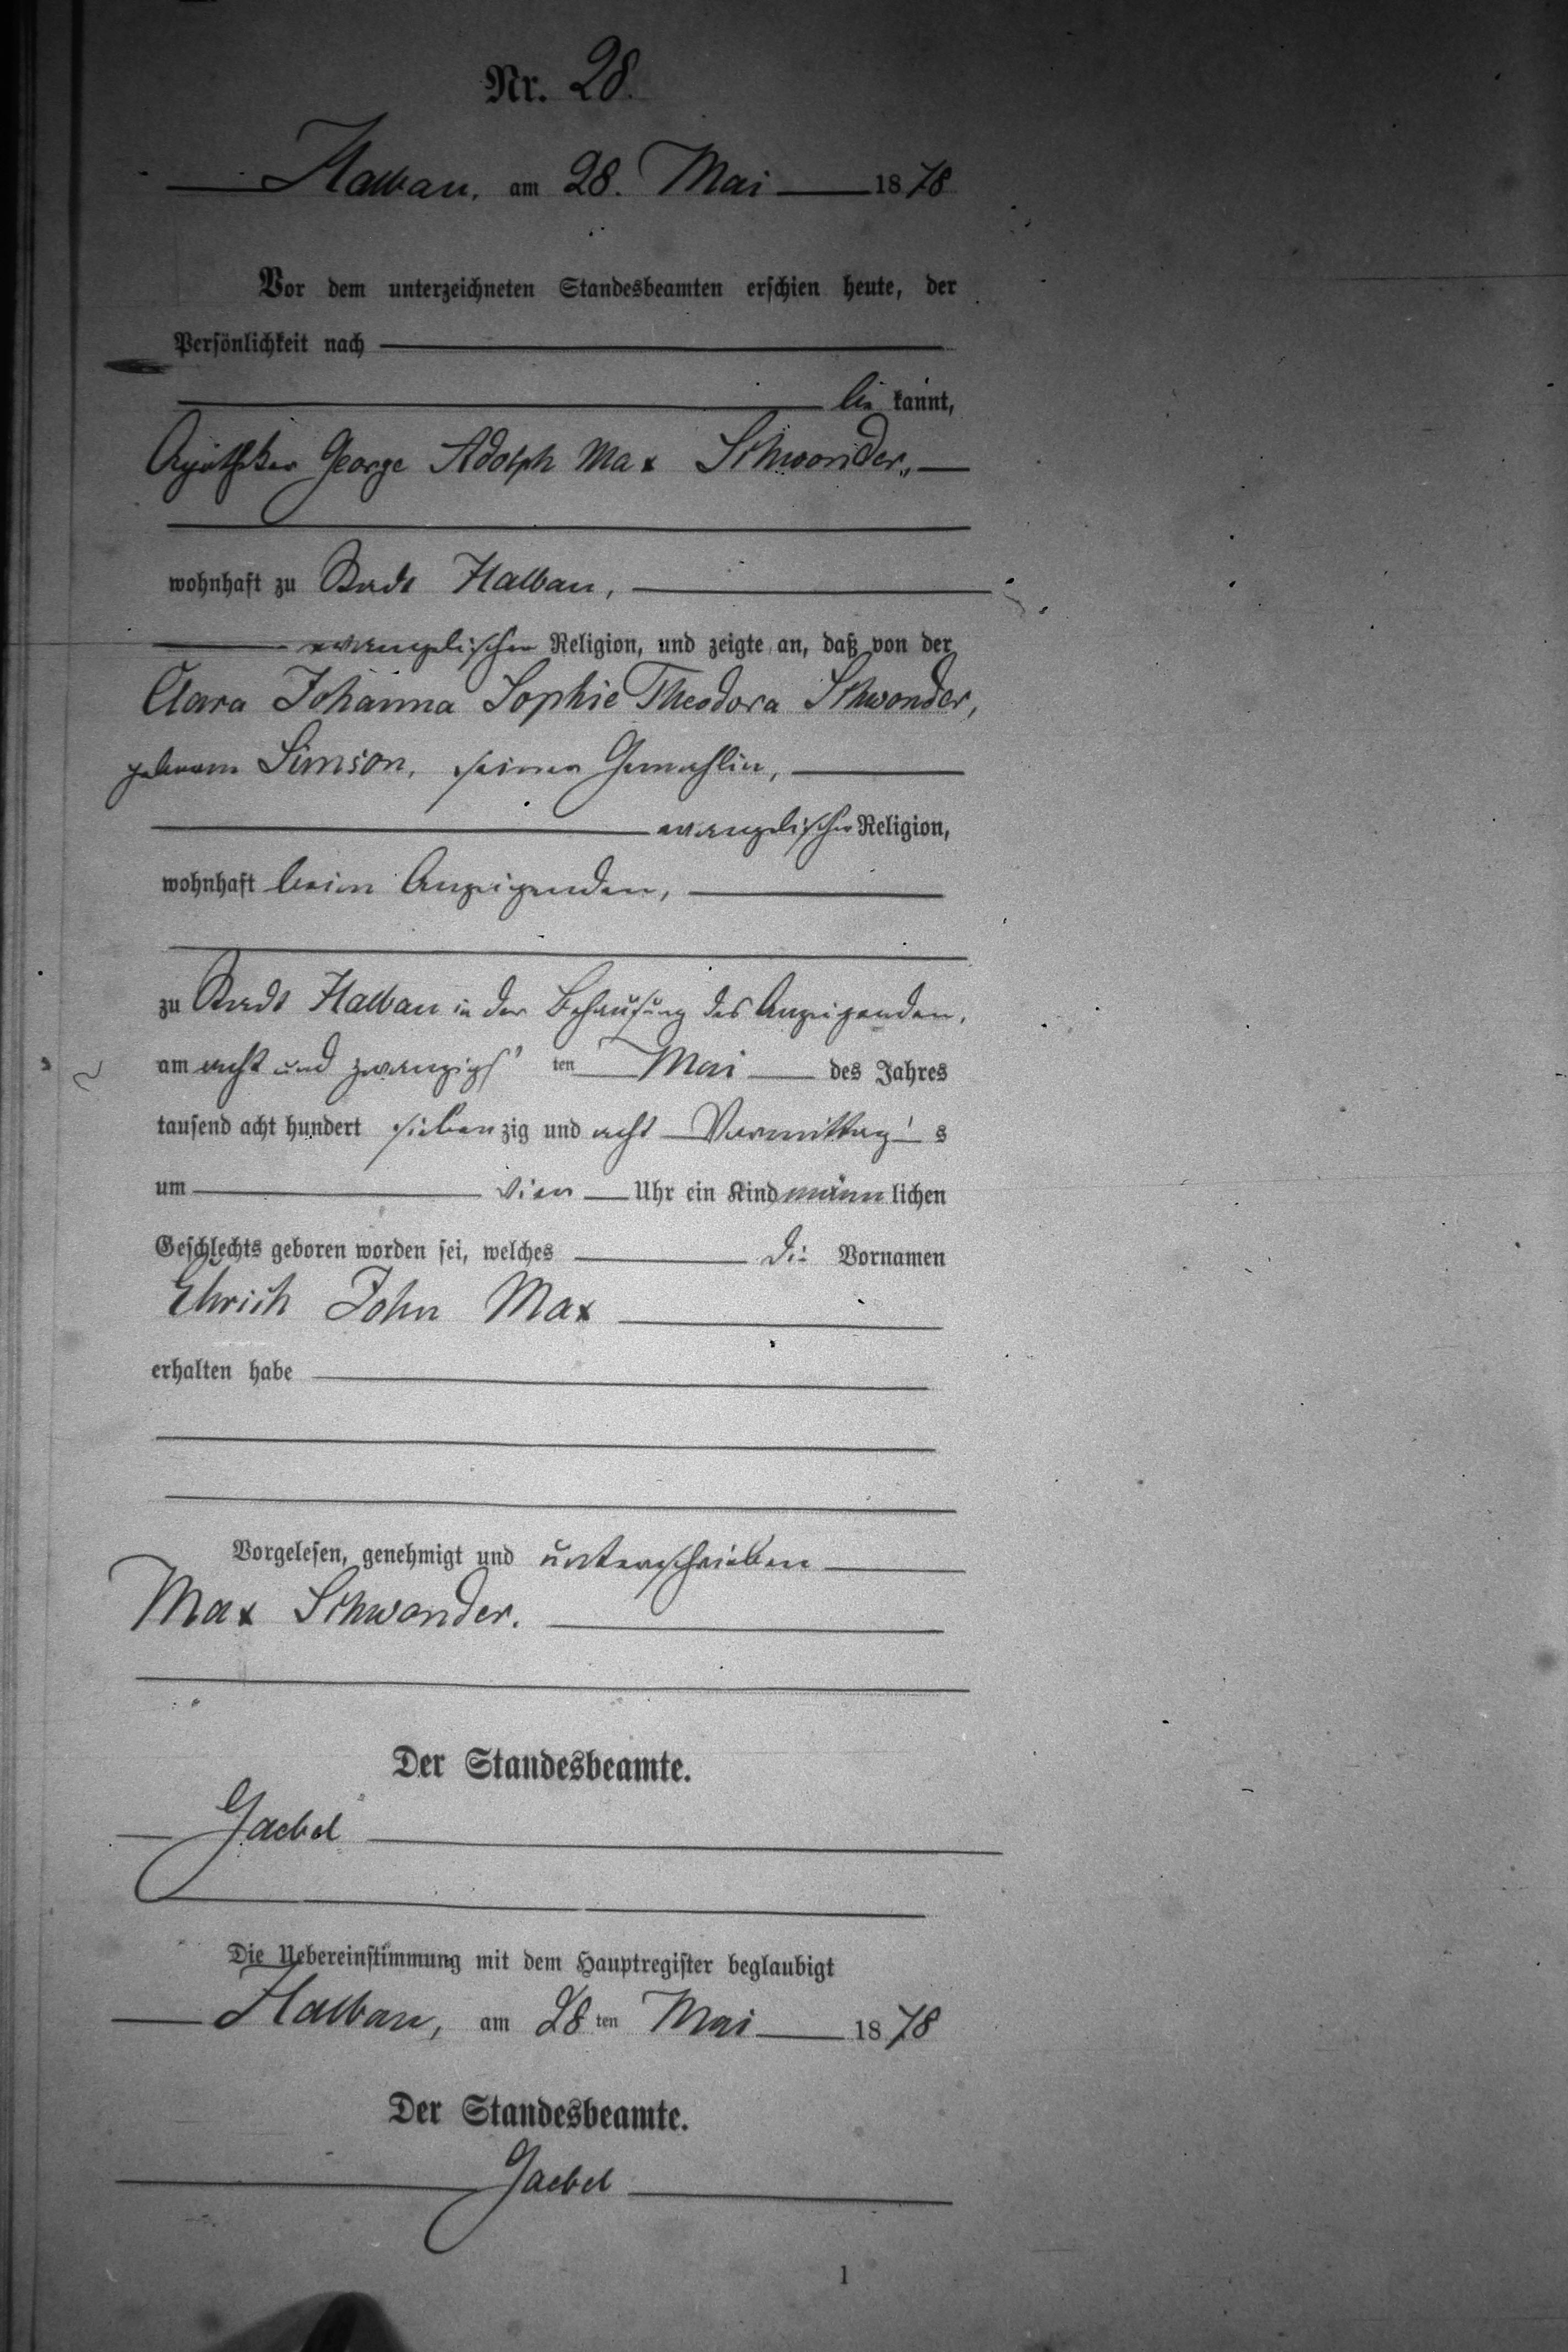 Nr. 28.
Halbau, am 28. Mai 1878
Vor dem unterzeichneten Standesbeamten erschien heute, der
Persönlichkeit nach
be kannt,
Apotheker George Adolph Max Schwonder,
wohnhaft zu Stadt Halbau,
evangelischer Religion, und zeigte an, daß von der
Clara Johanna Sophie Theodora Schwonder,
geborene Simson, seiner Gemahlin,
evangelischer Religion,
wohnhaft beim Anzeigenden,
zu Stadt Halbau in der Behausung des Anzeigenden,
am acht und zwanzigs ten Mai des Jahres
tausend acht hundert siebenzig und acht Vormittag s
um vier Uhr ein Kind männlichen
Geschlechts geboren worden sei, welches die Vornamen
Ehrich John Max
erhalten habe
Vorgelesen, genehmigt und unterschrieben
Max Schwonder.
Der Standesbeamte.
Gaebel
Die Uebereinstimmung mit dem Hauptregister beglaubigt
Halbau, am 28 ten Mai 1878
Der Standesbeamte.
Gaebel
1